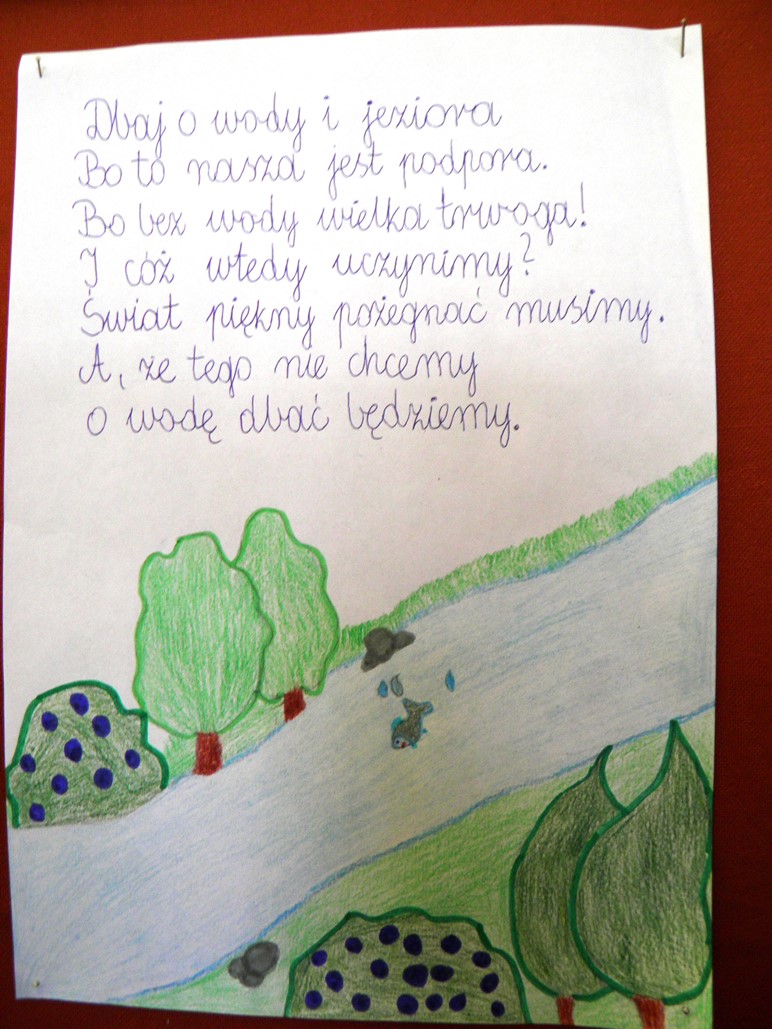 Dbaj o wody i jeziora
Bo to nasza jest podpora.
Bo bez wody wielka trwoga!
I cóż wtedy uczynimy?
Świat piękny pożegnać musimy.
A, że tego nie chcemy
o wodę dbać będziemy.